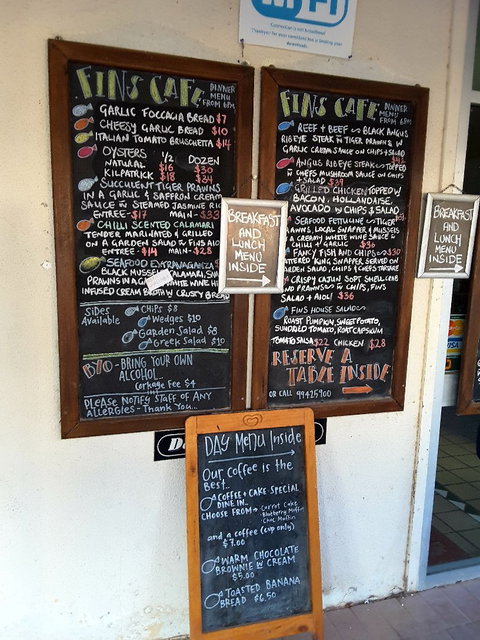 WiFi
FINS CAFE
DINNER
MENU
FROM 6PM
GARLIC FOCCACIA BREAD $7
CHEESY GARLIC BREAD $10
ITALIAN TOMATO BRUSCHETTA $14
OYSTERS 1/2 DOZEN
NATURAL $16 $30
KILPATRICK $18 $34
SUCCULENT TIGER PRAWNS
IN A GARLIC & SAFFRON CREAM
SAUCE W STEAMED JASMINE RICE
ENTREE-$17 MAIN-$33
CHILLI SCENTED CALAMARI
TENDER MARINATED & GRILLED
ON A GARDEN SALAD W FINS AIO
ENTREE-$14 MAIN-$28
SEAFOOD EXTRAVAGANZA
BLACK MUSSELS CALAMARI
PRAWNS IN A WHITE WINE
INFUSED CREAM BROTH W CRUSTY BREAD
SIDES
AVAILABLE
CHIPS $8
WEDGES $10
GARDEN SALAD $8
GREEK SALAD $10
BYO - BRING YOUR OWN
ALCOHOL
CORKAGE FEE $4
PLEASE NOTIFY STAFF OF ANY
ALLERGIES - THANK YOU...
FINS CAFE
DINNER
MENU
FROM 6PM
REEF + BEEF BLACK ANGUS
RIB EYE STEAK W TIGER PRAWNS IN
GARLIC CREAM SAUCE ON CHIPS + SALAD
ANGUS RIB EYE STEAK TOPPED
W CHEFS MUSHROOM SAUCE ON CHIPS
+ SALAD $39
GRILLED CHICKEN TOPPED W
BACON, HOLLANDAISE,
AVOCADO W CHIPS & SALAD
SEAFOOD FETTUCINE TIGER
PRAWNS, LOCAL SNAPPER & MUSSELS
A CREAMY WHITE WINE SAUCE
CHILLI + GARLIC $36
FANCY FISH AND CHIPS $30
BATTERED KING SNAPPER, SERVED ON
GARDEN SALAD, CHIPS & CHEFS TARTARE
CRISPY CAJUN SOFT SHELL CRAB
AND PRAWNS W CHIPS, FINS
SALAD + AIOLI $36
FINS HOUSE SALAD
ROAST PUMPKIN, SWEET POTATO,
SUNDRIED TOMATO, ROAST CAPSICUM
TOMATO SALSA $22 CHICKEN $28
RESERVE A
TABLE INSIDE
OR CALL 99425900
BREAKFAST
AND
LUNCH
MENU
INSIDE
BREAKFAST
AND
LUNCH
MENU
INSIDE
VISA
DAY MENU Inside
Our coffee is the
Best..
COFFEE + CAKE SPECIAL
DINE IN..
CHOOSE FROM Carrot Cake
Blueberry Muffin
Choc Muffin
and a coffee (cup only)
$7.00
WARM CHOCOLATE
BROWNIE W CREAM
$5.00
TOASTED BANANA
BREAD $6.50